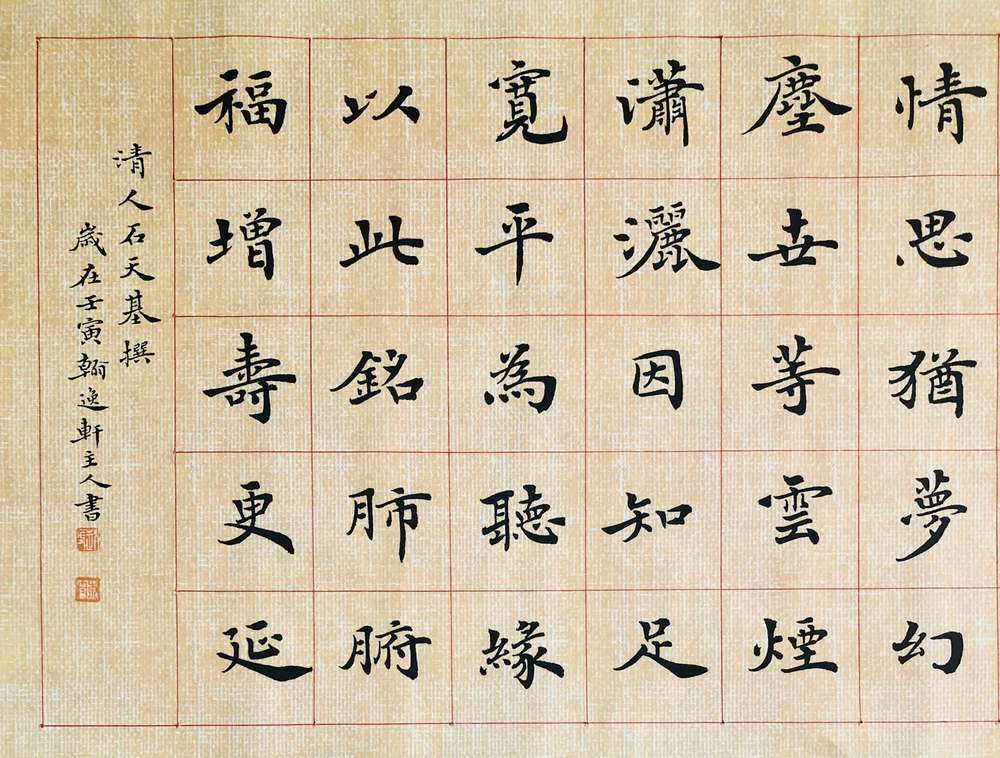 情思猶夢幻
塵世等雲煙
瀟灑因知足
寬平為聽緣
以此銘肺腑
福增壽更延
清人石天基撰
歲在壬寅翰逸軒主人書